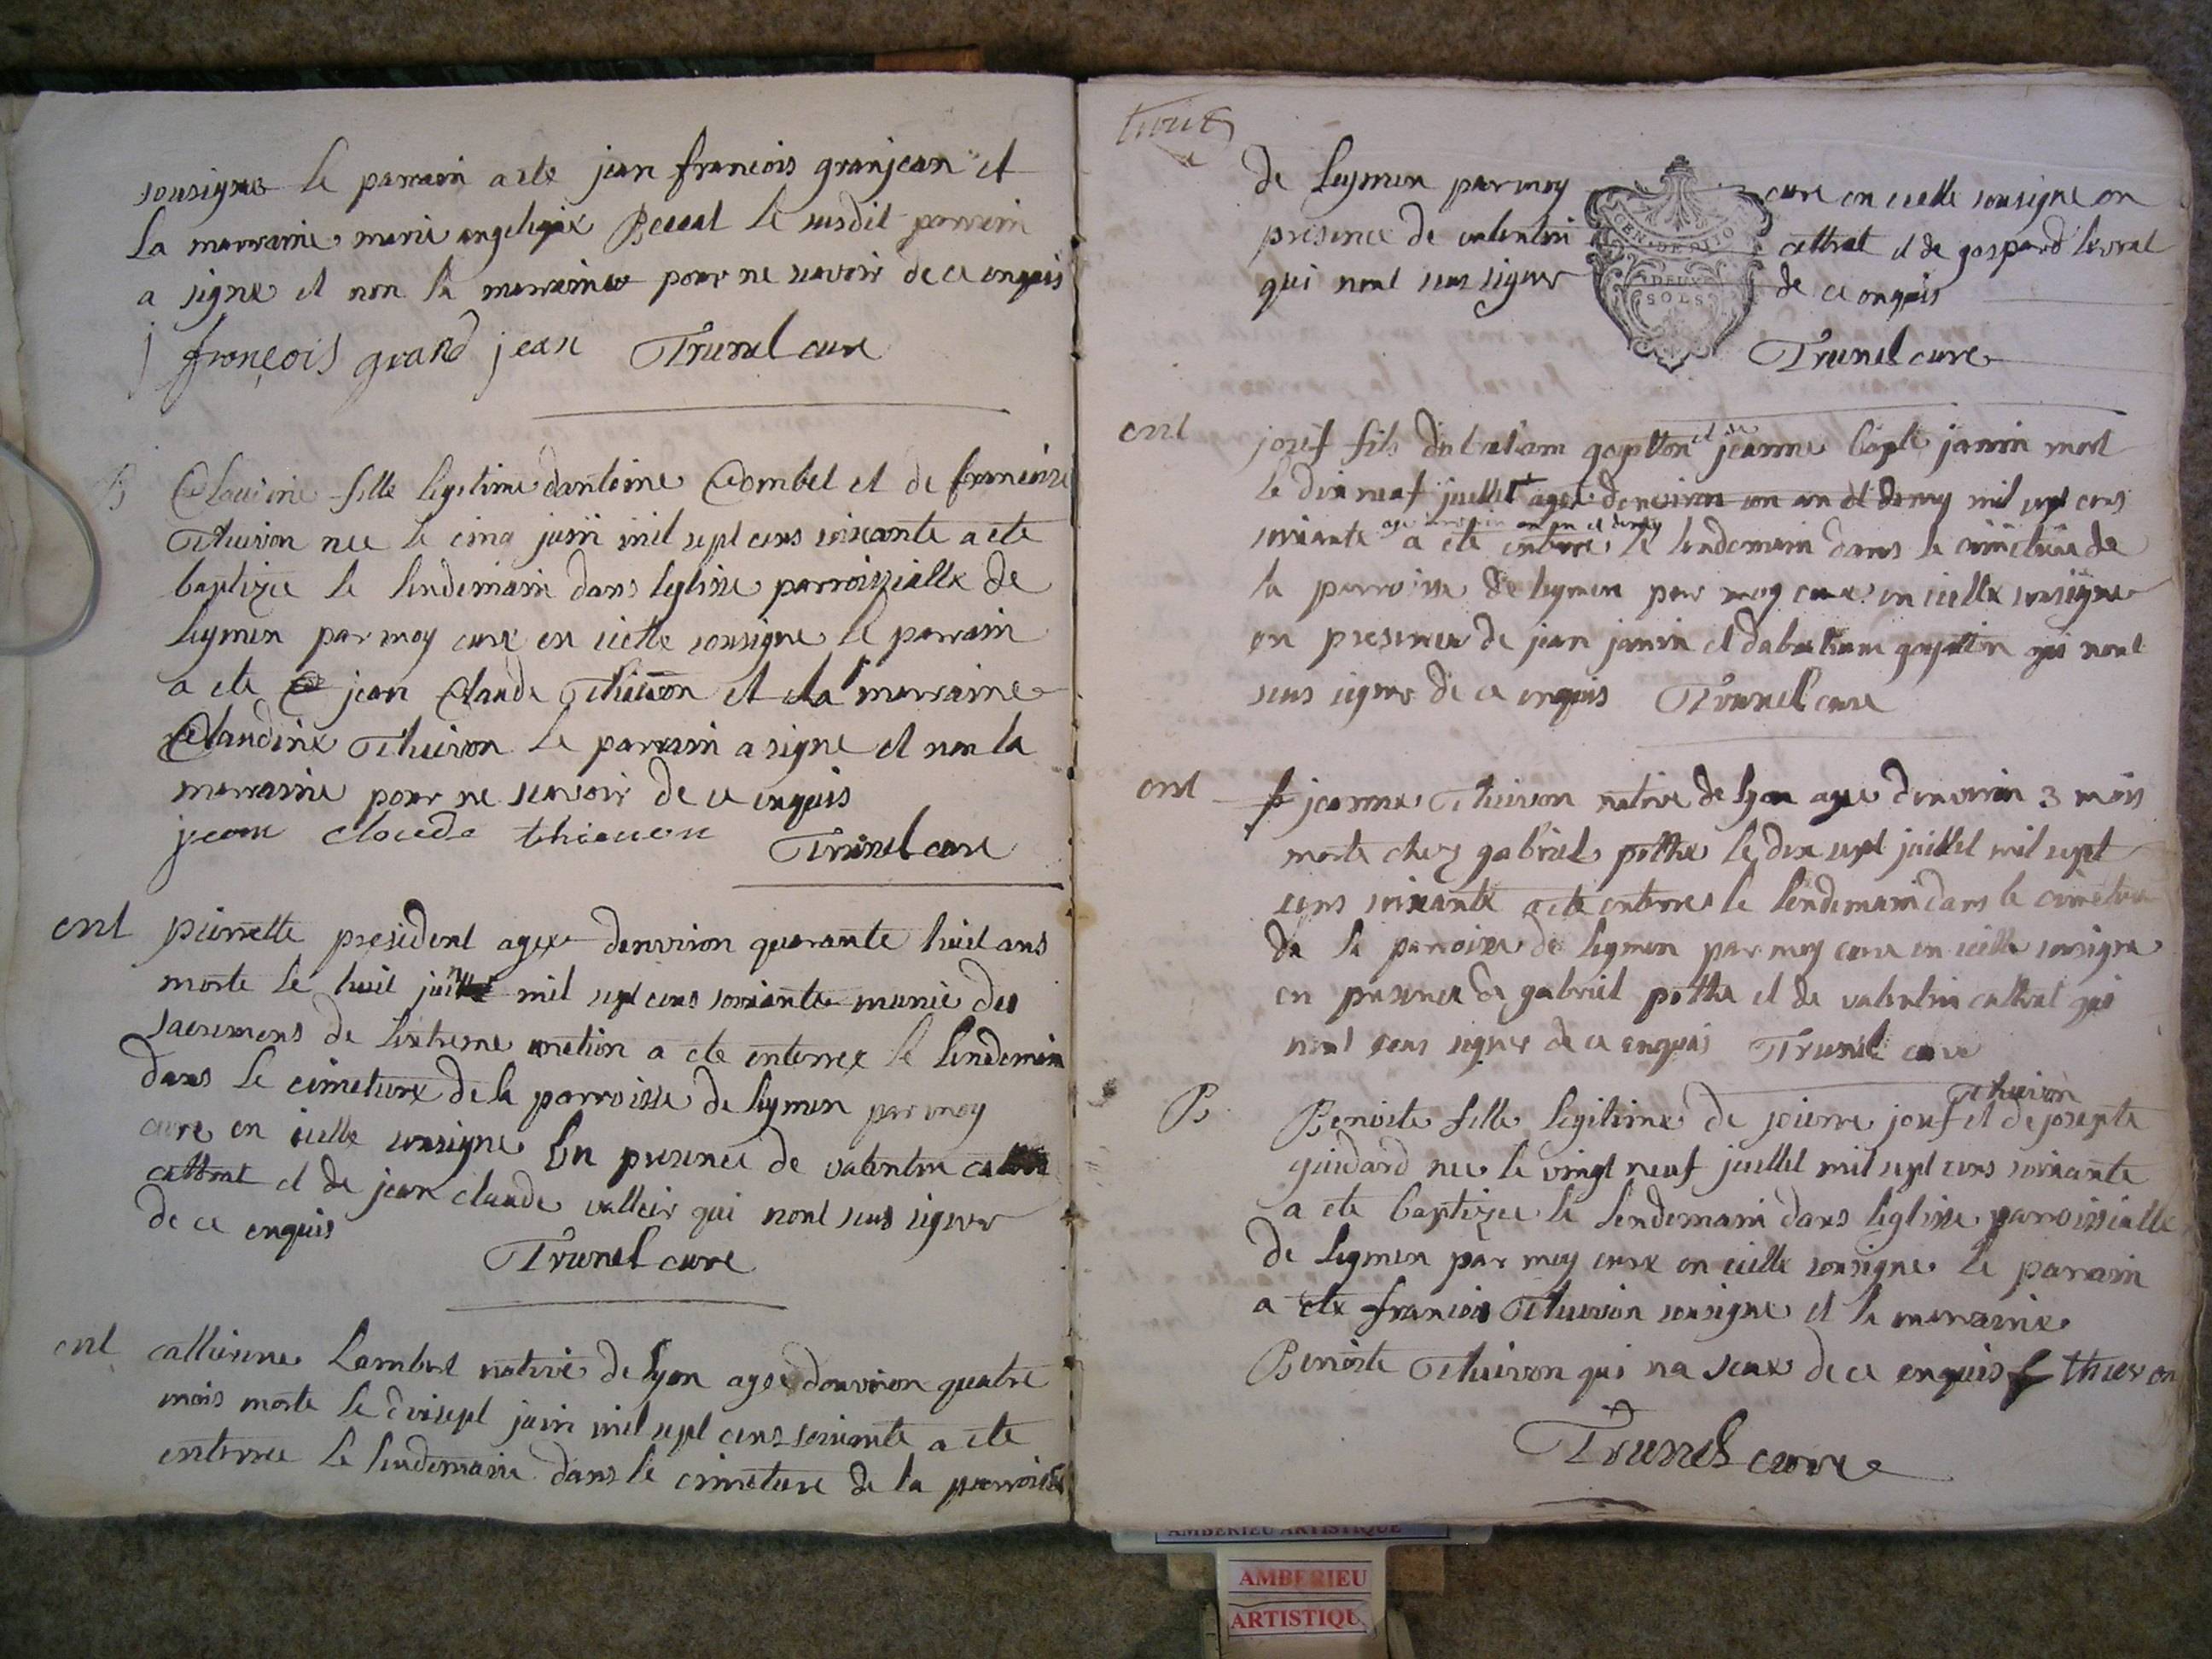 sousigne le parrain a ete jean francois granjean et
la marraine marie angelique le susdit parrain
a signe et non la marraine pour ne scavoir de ce enquis
j françois grand jean Trunel cure
B Claudine fille legitime dantoine Combet et de francoise
Thievon nee le cinq juin mil sept cens soixante a ete
baptizee le lendemain dans leglise parroissialle de
leymen par moy cure en icelle sousigne le parrain
a ete jean Claude Thievon et la marraine
Claudine Thievon le parrain a signe et non la
marraine pour ne scavoir de ce enquis
jean cloude thievon Trunel cure
ent pierrette president agee denviron quarante huit ans
morte le huit juin mil sept cens soixante munie des
sacremens de lextreme onction a ete enterree le lendemain
dans le cimetiere de la parroisse de leymen par moy
cure en icelle sousigne En presence de valentin
cattrat et de jean claude qui nont sceus signer
de ce enquis
Trunel cure
ent catherine Lambert native de lyon agee denviron quatre
mois morte le dixsept juin mil sept cens soixante a ete
enterree le lendemain dans le cimetiere de la parroisse
de leymen par moy cure en icelle sousigne en
presence de valentin cattrat et de gaspard
qui nont sceus signer de ce enquis
GEN · DE DIJON
DEUX
SOLS
Trunel cure
ent josef fils dabraham et de jeanne janin mort
le dix neuf juillet age denviron un an et demy mil sept cens
age denviron un an et demy
soixante a ete enterre le lendemain dans le cimetiere de
la parroisse de leymen par moy cure en icelle sousigne
en presence de jean janin et dabraham qui nont
sceus signer de ce enquis Trunel cure
ent jeanne Thievon native de lyon agee denviron 3 mois
morte chez gabriel pothe le dix sept juillet mil sept
cens soixante a ete enterree le lendemain dans le cimetiere
de la parroisse de leymen par moy cure en icelle sousigne
en presence de gabriel pothe et de valentin cattrat qui
nont sceus signer de ce enquis Trunel cure
Thievon
B Benoite fille legitime de pierre josef et de josepte
guidard nee le vingt neuf juillet mil sept cens soixante
a ete baptizee le lendemain dans leglise parroissialle
de leymen par moy cure en icelle sousigne le parrain
a ete francois Thievon sousigne et la marraine
Benoite Thievon qui na sceu de ce enquis f thievon
Trunel cure
AMBERIEU ARTISTIQUE
AMBERIEU
ARTISTIQUE